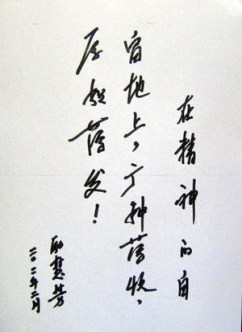 在精神的自
留地上，广种薄收、
厚积薄发！
二〇一二年二月